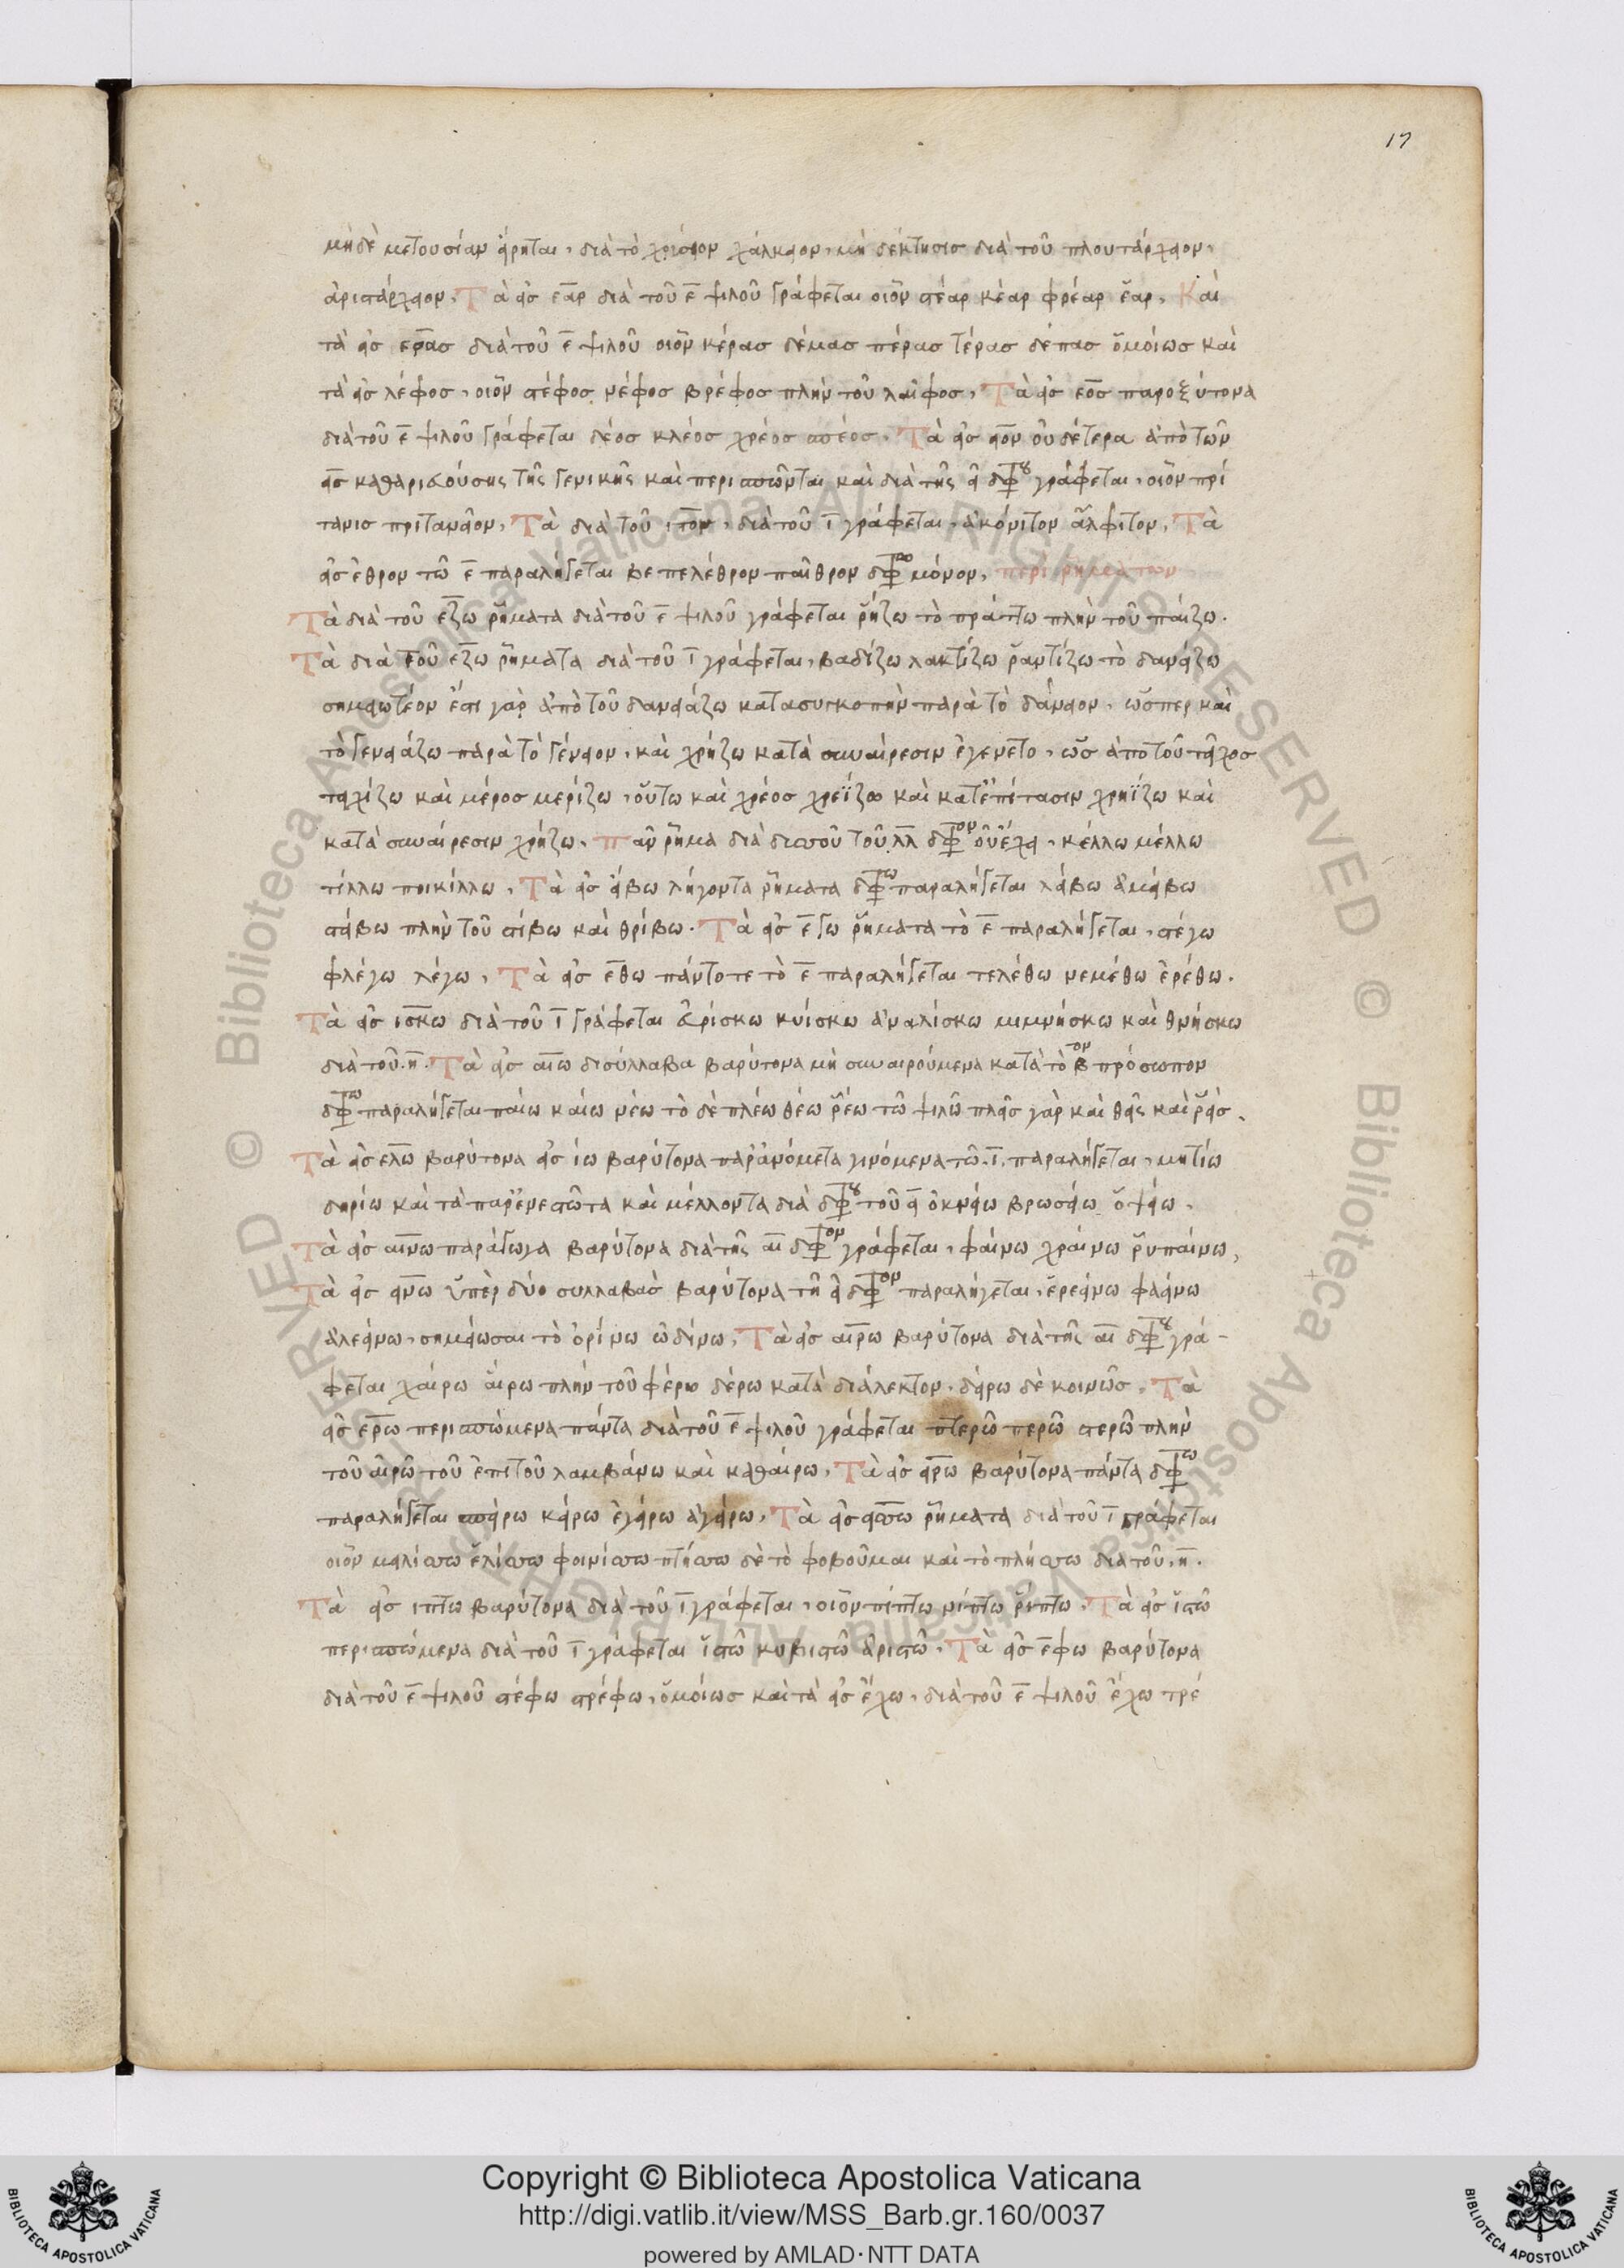 17
μὴ δὲ μετουσίαν εἴρηται, διὰ τὸ χρύσειον χάλκειον, μὴ δὲ κτῆσις διὰ τοῦ πλουτάρχειον,
ἀριστάρχειον, Τὰ εἰς εαρ διὰ τοῦ ε ψιλοῦ γράφεται οἷον στέαρ κέαρ φρέαρ ἔαρ, Καὶ
τὰ εἰς ερας διὰ τοῦ ε ψιλοῦ οἷον κέρας δέμας πέρας τέρας δέπας ὁμοίως καὶ
τὰ εἰς λέφος, οἷον στέφος νέφος βρέφος πλὴν τοῦ λαῖφος, Τὰ εἰς εος παροξύτονα
διὰ τοῦ ε ψιλοῦ γράφεται δέος κλέος χρέος σπέος, Τὰ εἰς ειον οὐδέτερα ἀπὸ τῶν
εις καθαριευούσης τῆς γενικῆς καὶ περισπῶνται καὶ διὰ τῆς ει διφθόγγου γράφεται, οἷον πρύ
τανις πρυτανεῖον, Τὰ διὰ τοῦ ιτον, διὰ τοῦ ι γράφεται, ἀκόνιτον ἄλφιτον, Τὰ
εἰς ἐθρον τῶ ε παραλήγεται βε πελέθρον παῖθρον διφθόγγω μόνον, περὶ ῥημάτων
Τὰ διὰ τοῦ εζω ῥήματα διὰ τοῦ ε ψιλοῦ γράφεται ῥήζω τὸ πράττω πλὴν τοῦ παίζω.
Τὰ διὰ τοῦ εζω ῥήματα διὰ τοῦ ι γράφεται, βαδίζω λακτίζω ῥαντίζω τὸ δανείζω
σημειωτέον ἔστι γὰρ ἀπὸ τοῦ δανειάζω κατασυγκοπὴν παρὰ τὸ δάνειον, ὥσπερ καὶ
τὸ γενειάζω παρὰ τὸ γένειον, καὶ χρήζω κατὰ συναίρεσιν ἐγένετο, ὡς ἀπὸ τοῦ τεῖχος
τειχίζω καὶ μέρος μερίζω, οὕτω καὶ χρέος χρεΐζω καὶ κατ' ἐπίτασιν χρηΐζω καὶ
κατὰ συναίρεσιν χρήζω, Πᾶν ῥῆμα διὰ δισσοῦ τοῦ λλ δίφθογγον οὐ ἔχει, κέλλω μέλλω
τίλλω ποικίλλω, Τὰ εἰς είβω λήγοντα ῥήματα διφθόγγω παραλήγεται λείβω ἀμείβω
στείβω πλὴν τοῦ στίβω καὶ θρίβω. Τὰ εἰς εγω ῥήματα τὸ ε παραλήγεται, στέγω
φλέγω λέγω, Τὰ εἰς εθω πάντοτε τὸ ε παραλήγεται τελέθω νεμέθω ἐρέθω.
Τὰ εἰς ισκω διὰ τοῦ ι γράφεται εὑρίσκω κυίσκω ἀναλίσκω μιμνήσκω καὶ θνήσκω
διὰ τοῦ η. Τὰ εἰς αιω δισύλλαβα βαρύτονα μὴ συναιρούμενα κατὰ τὸ βον πρόσωπον
διφθόγγω παραλήγεται παίω καίω νέω τὸ δὲ πλέω θέω ῥέω τῶ ψιλῶ πλεῖς γὰρ καὶ θεῖς καὶ ῥεῖς.
Τὰ εἰς ελω βαρύτονα εἰς ίω βαρύτονα παρονόματα γινόμενα τῶ ι παραλήγεται, μητίω
δηρίω καὶ τὰ παρ' ἐνεστῶτα καὶ μέλλοντα διὰ διφθόγγου τοῦ ει ὀκνείω βρωσείω ὀψείω.
Τὰ εἰς αινω παράγωγα βαρύτονα διὰ τῆς αι δίφθογγον γράφεται, φαίνω χραίνω ῥυπαίνω,
Τὰ εἰς εινω ὑπὲρ δύο συλλαβὰς βαρύτονα τῆ ει δίφθογγον παραλήγεται, ἐρεείνω φαείνω
ἀλεείνω, σημείωσαι τὸ ὀρίνω ὠδίνω, Τὰ εἰς αιρω βαρύτονα διὰ τῆς αι διφθόγγου γρά-
φεται χαίρω αἴρω πλὴν τοῦ φέρω δέρω κατὰ διάλεκτον, δείρω δὲ κοινῶς, Τὰ
εἰς ερω περισπώμενα πάντα διὰ τοῦ ε ψιλοῦ γράφεται πτερῶ περῶ στερῶ πλὴν
τοῦ αἱρῶ τοῦ ἐπὶ τοῦ λαμβάνω καὶ καθαίρω, Τὰ εἰς ειρω βαρύτονα πάντα διφθόγγω
παραλήγεται σπείρω κείρω ἐγείρω ἀγείρω, Τὰ εἰς εισσω ῥήματα διὰ τοῦ ι γράφεται
οἷον μειλίσσω ἑλίσσω φοινίσσω πτήσσω δὲ τὸ φοβοῦμαι καὶ τὸ πλήσσω διὰ τοῦ, η.
Τὰ εἰς ιπτω βαρύτονα διὰ τοῦ ι γράφεται, οἷον πίπτω νίπτω ῥίπτω, Τὰ εἰς ιστῶ
περισπώμενα διὰ τοῦ ι γράφεται ἱστῶ κυβιστῶ ἀριστῶ, Τὰ εἰς εφω βαρύτονα
διὰ τοῦ ε ψιλοῦ στέφω στρέφω, ὁμοίως καὶ τὰ εἰς έχω, διὰ τοῦ ε ψιλοῦ ἔχω τρέ
© Biblioteca Apostolica Vaticana. ALL RIGHTS RESERVED
Copyright © Biblioteca Apostolica Vaticana
http://digi.vatlib.it/view/MSS_Barb.gr.160/0037
powered by AMLAD·NTT DATA
BIBLIOTECA APOSTOLICA VATICANA
BIBLIOTECA APOSTOLICA VATICANA